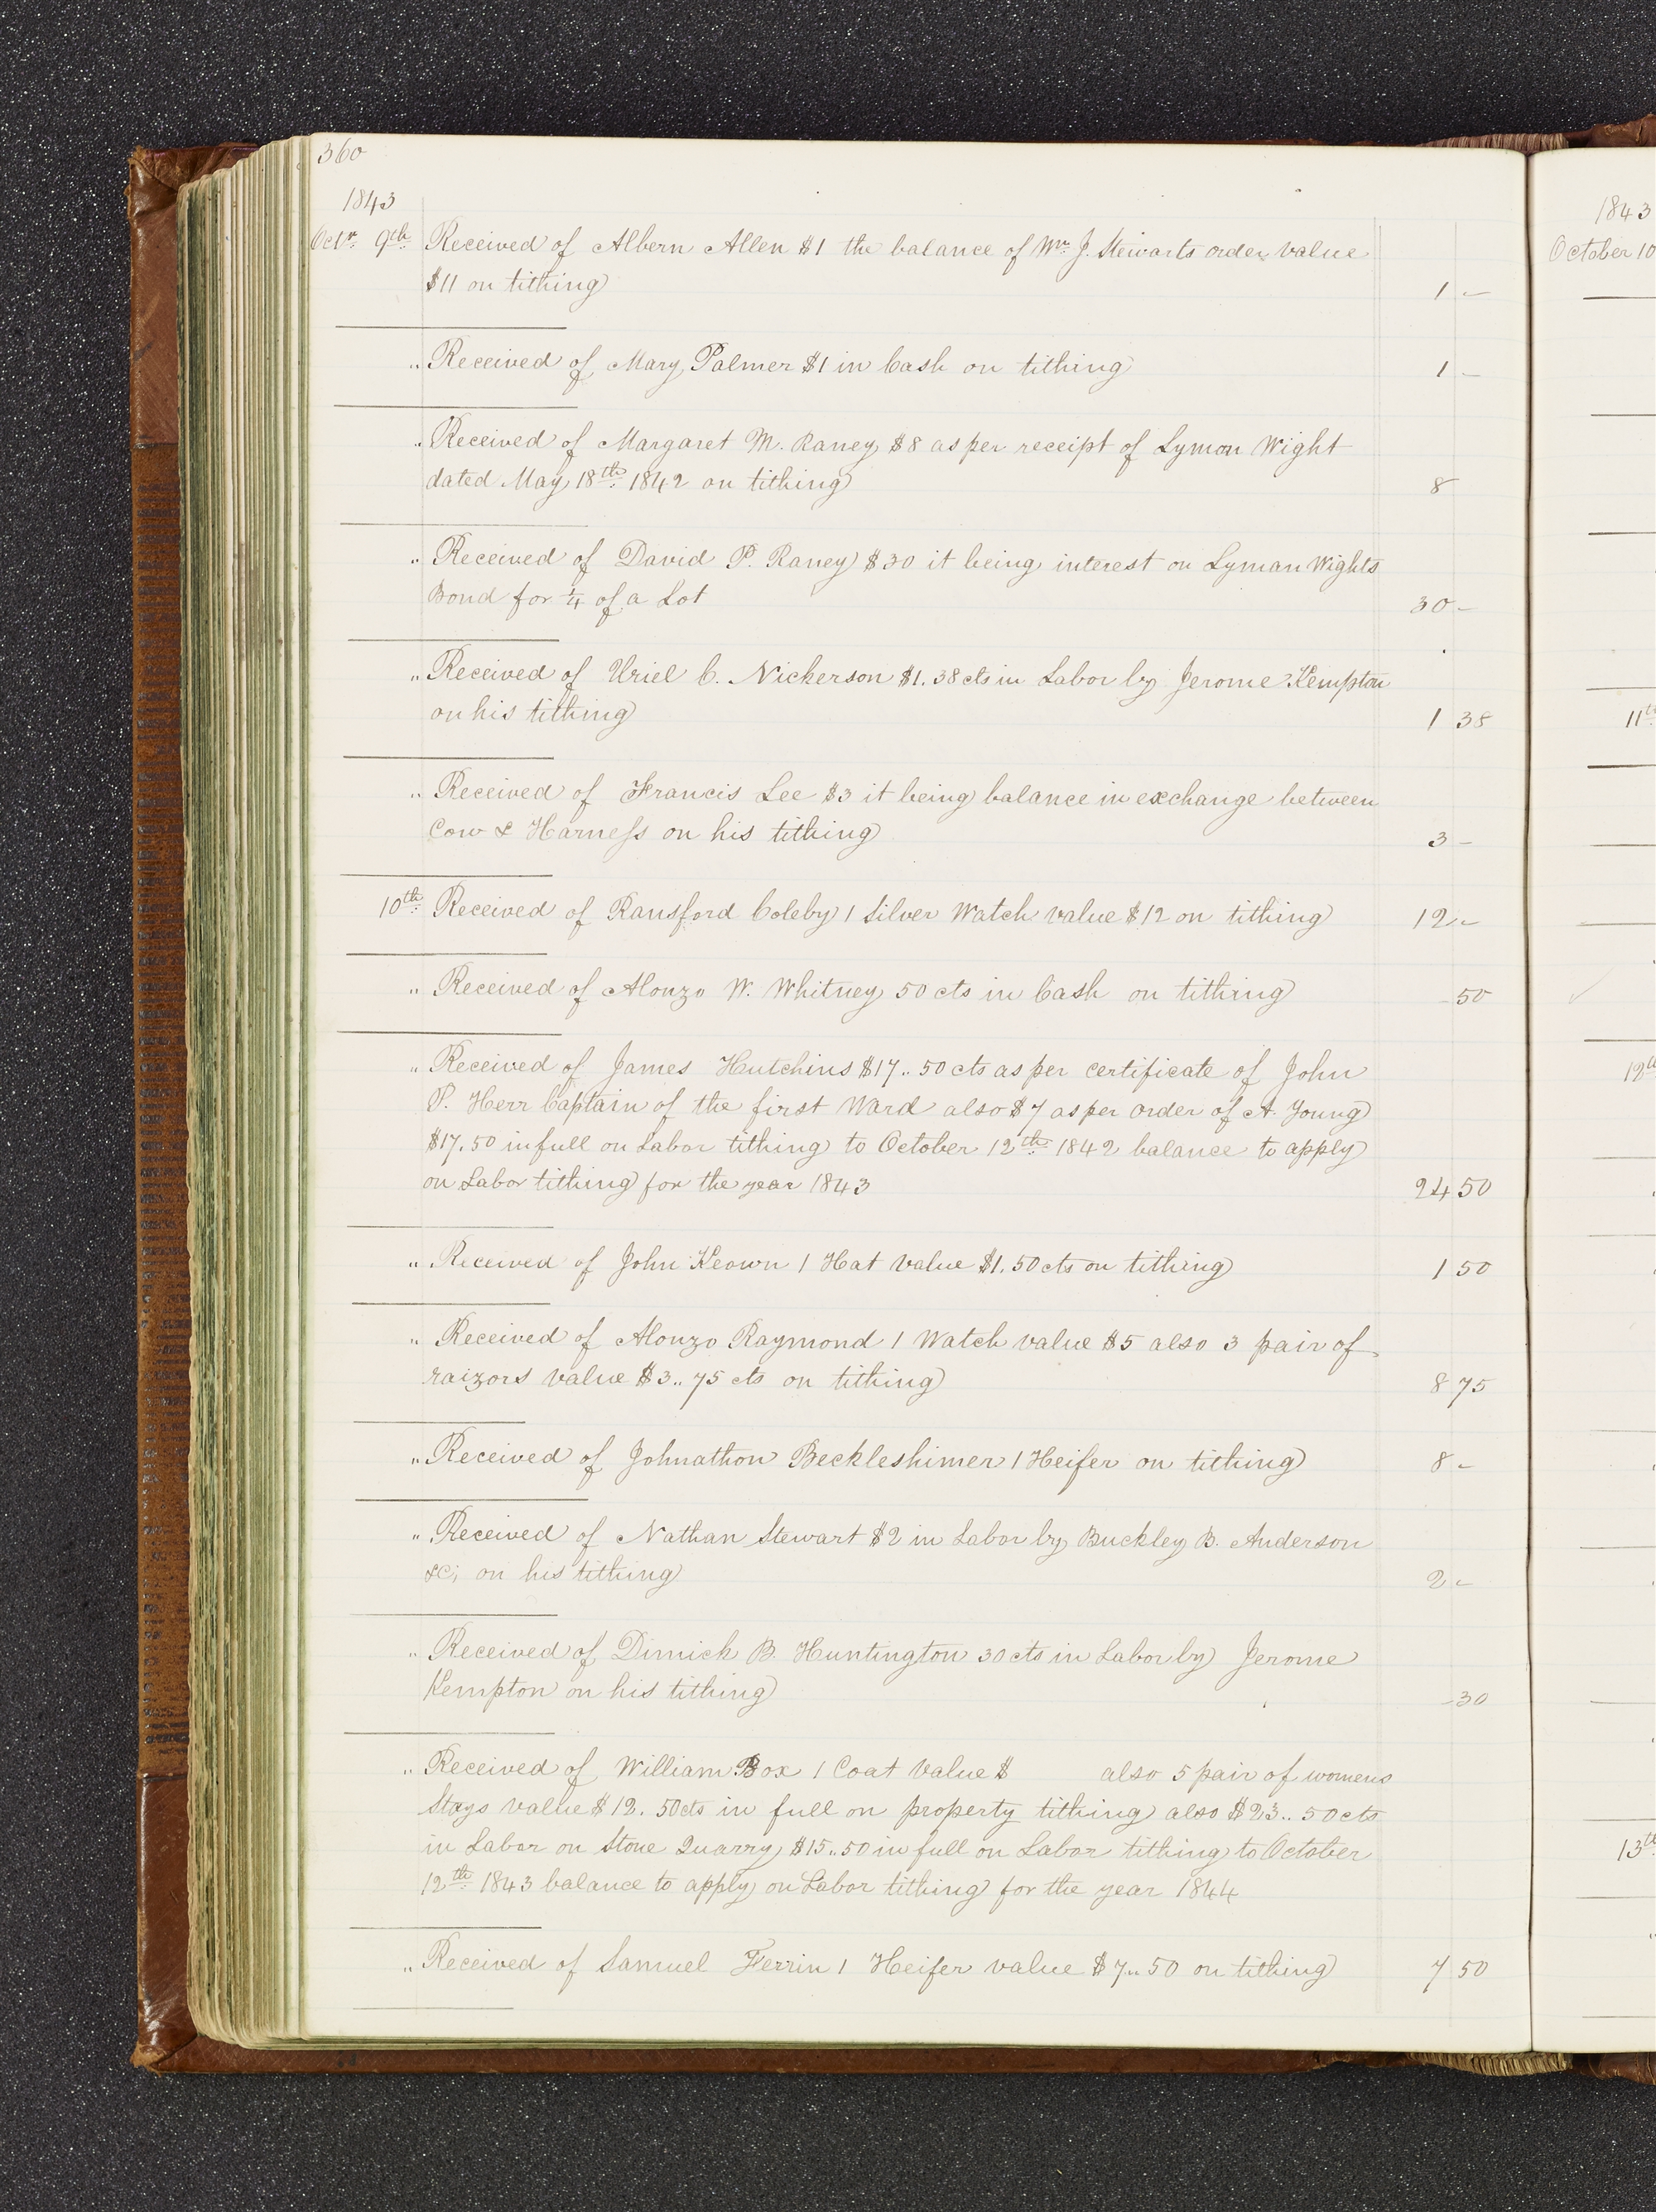 360
1843
Octr. 9th. Received of Albern Allen $1 the balance of Wm. J. Stewarts order value
$11 on tithing 1 -
" Received of Mary Palmer $1 in Cash on tithing 1 -
" Received of Margaret M. Raney $8 as per receipt of Lyman Wight
dated May 18th. 1842 on tithing 8
" Received of David P. Raney $30 it being interest on Lyman Wights
Bond for 1/4 of a Lot 30 -
" Received of Uriel C. Nickerson $1.38 cts in Labor by Jerome Kempton
on his tithing 1 38
" Received of Francis Lee $3 it being balance in exchange between
Cow & Harness on his tithing 3 -
10th. Received of Ransford Coleby 1 Silver Watch value $12 on tithing 12 -
" Received of Alonzo W. Whitney 50 cts in Cash on tithing - 50
" Received of James Hutchins $17..50 cts as per certificate of John
P. Herr Captain of the first Ward also $7 as per order of A. Young
$17.50 in full on Labor tithing to October 12th. 1842 balance to apply
on Labor tithing for the year 1843 24 50
" Received of John Keown 1 Hat value $1.50 cts on tithing 1 50
" Received of Alonzo Raymond 1 Watch value $5 also 3 pair of
raizors value $3..75 cts on tithing 8 75
" Received of Johnathon Beckleshimer 1 Heifer on tithing 8 -
" Received of Nathan Stewart $2 in Labor by Buckley B. Anderson
&c; on his tithing 2 -
" Received of Dimick B. Huntington 30 cts in Labor by Jerome
Kempton on his tithing - 30
" Received of William Box 1 Coat value $ also 5 pair of womens
Stays value $12.50 cts in full on property tithing also $23..50 cts
in Labor on Stone Quarry $15..50 in full on Labor tithing to October
12th. 1843 balance to apply on Labor tithing for the year 1844
" Received of Samuel Ferrin 1 Heifer value $7..50 on tithing 7 50
1843
October 10
11th
12th
13th